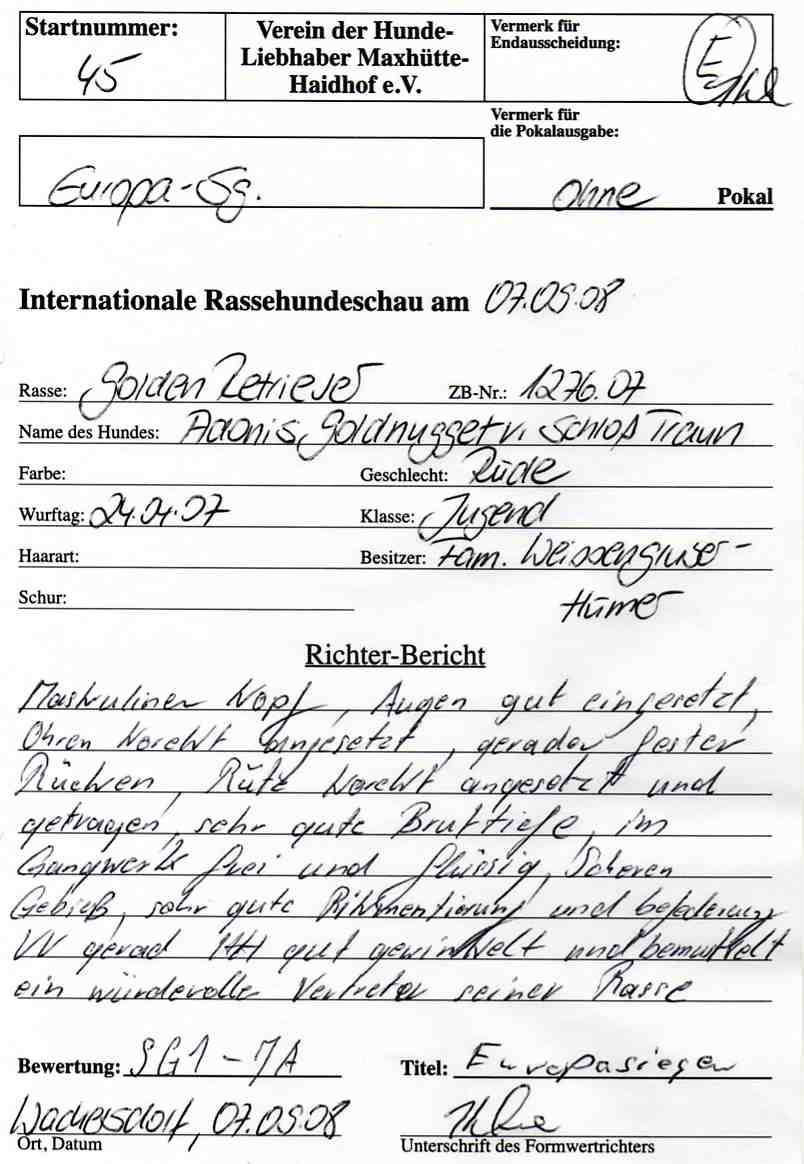 Startnummer:
45
Verein der Hunde-
Liebhaber Maxhütte-
Haidhof e.V.
Vermerk für
Endausscheidung:
E
Vermerk für
die Pokalausgabe:
Europa-Sg.
Ohne Pokal
Internationale Rassehundeschau am 07.09.08
Rasse: Golden Retriever ZB-Nr.: 1276.07
Name des Hundes: Adonis, Goldnugget v. Schloß Traun
Farbe: Geschlecht: Rüde
Wurftag: 24.04.07 Klasse: Jugend
Haarart: Besitzer: Fam. Weissengruber-
Schur: Humer
Richter-Bericht
Maskuliner Kopf, Augen gut eingesetzt,
Ohren korekt angesetzt, gerader fester
Rücken, Rute korekt angesetzt und
getragen, sehr gute Brusttiefe, im
Gangwerk frei und flüssig, Scheren
Gebieß, sehr gute Pikmentierung und befederung
VV gerad HH gut gewinkelt und bemuskelt
ein würdevoller Vertreter seiner Rasse
Bewertung: SG1 - JA Titel: Europasieger
Wackersdorf, 07.09.08
Ort, Datum Unterschrift des Formwertrichters